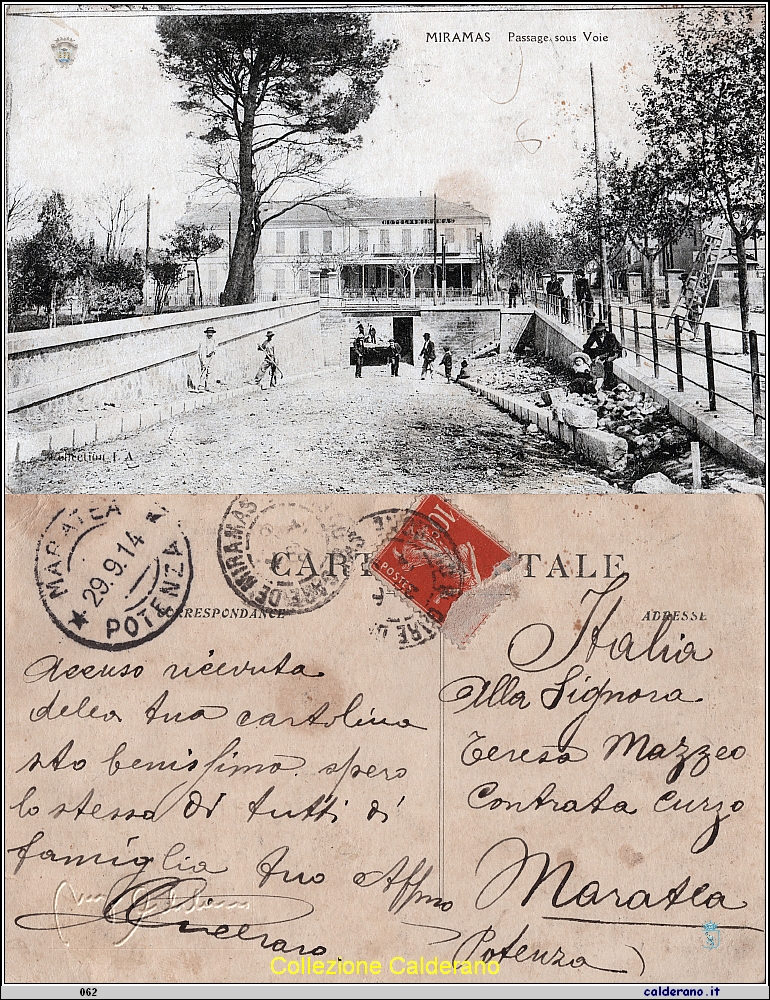 MIRAMAS Passage sous Voie
HOTEL MIRAMAS
Collection I. A
MARATEA
29.9.14
POTENZA
GARE DE MIRAMAS
CARTE POSTALE
10
POSTES
CORRESPONDANCE
ADRESSE
Accuso ricevuta
della tua cartolina
sto benissimo. spero
lo stesso di tutti di
famiglia tuo Affmo
Italia
Alla Signora
Teresa Mazzeo
Contrata Curzo
Maratea
Potenza
Collezione Calderano
062
calderano.it